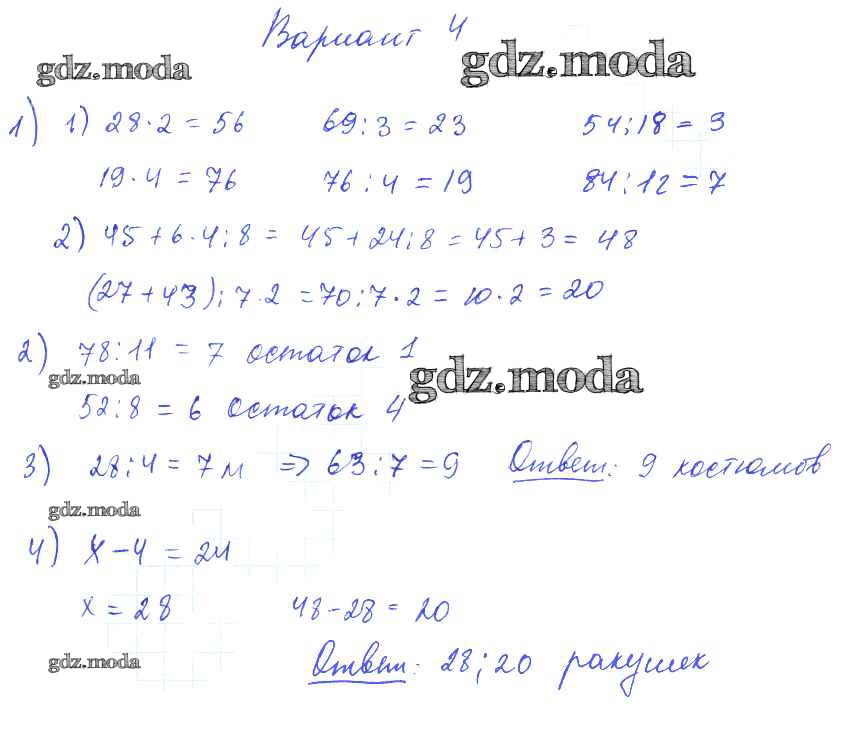 Вариант 4
gdz.moda gdz.moda
1) 1) 28·2 = 56 69:3 = 23 54:18 = 3
19·4 = 76 76:4 = 19 84:12 = 7
2) 45+6·4:8 = 45+24:8 = 45+3 = 48
(27+43):7·2 = 70:7·2 = 10·2 = 20
2) 78:11 = 7 остаток 1
gdz.moda gdz.moda
52:8 = 6 остаток 4
3) 28:4 = 7м => 63:7 = 9 Ответ: 9 костюмов
gdz.moda
4) x-4 = 24
x = 28 48-28 = 20
gdz.moda Ответ: 28; 20 ракушек